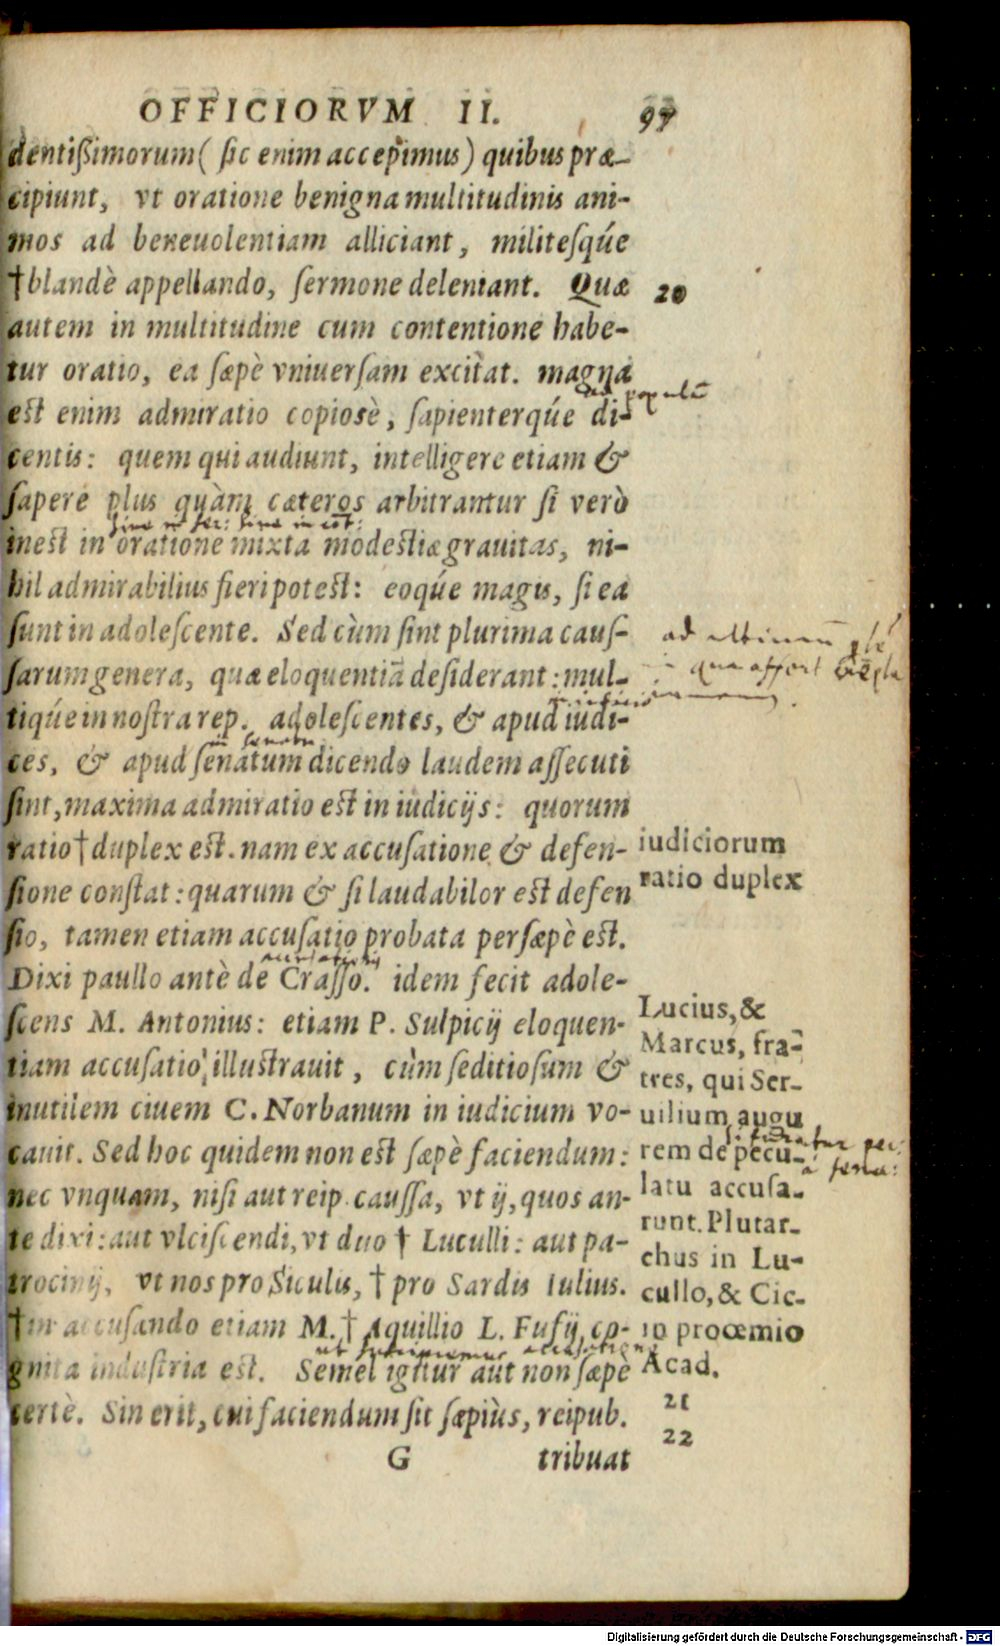 OFFICIORVM II. 97
dentißimorum ( sic enim accepimus ) quibus præ-
cipiunt, vt oratione benigna multitudinis ani-
mos ad beneuolentiam alliciant, militesq́ue
†blandè appellando, sermone deleniant. Quæ
20
autem in multitudine cum contentione habe-
tur oratio, ea sæpè vniuersam excitat. magna
ad populū
est enim admiratio copiosè, sapienterq́ue di-
centis: quem qui audiunt, intelligere etiam &
sapere plus quàm cæteros arbitrantur si verò
siue in ser: siue in cōt:
inest in oratione mixta modestiæ grauitas, ni-
hil admirabilius fieri potest: eoq́ue magis, si ea
sunt in adolescente. Sed cùm sint plurima caus-
ad ultimum
sarum genera, quæ eloquentiā desiderant: mul-
qua affert
tiq́ue in nostra rep. adolescentes, & apud iudi-
in senatu
ces, & apud senatum dicendo laudem assecuti
sint, maxima admiratio est in iudicijs: quorum
ratio†duplex est. nam ex accusatione & defen-
iudiciorum
ratio duplex
sione constat: quarum & si laudabilor est defen
sio, tamen etiam accusatio probata persæpè est.
accusationis
Dixi paullo antè de Crasso. idem fecit adole-
scens M. Antonius: etiam P. Sulpicij eloquen-
tiam accusatio illustrauit, cùm seditiosum &
inutilem ciuem C. Norbanum in iudicium vo-
cauit. Sed hoc quidem non est sæpè faciendum:
nec vnquam, nisi aut reip. caussa, vt ij, quos an-
te dixi: aut vlciscendi, vt duo † Luculli: aut pa-
trocinij, vt nos pro Siculis, † pro Sardis Iulius.
†in accusando etiam M.† Aquillio L. Fufij, co-
gnita industria est. Semel igitur aut non sæpè
certè. Sin erit, cui faciendum sit sæpiùs, reipub.
Lucius, &
Marcus, fra-
tres, qui Ser-
uilium augu
rem de pecu-
latu accusa-
runt. Plutar-
chus in Lu-
cullo, & Cic-
in proœmio
Acad.
21
22
G tribuat
Digitalisierung gefördert durch die Deutsche Forschungsgemeinschaft - DFG